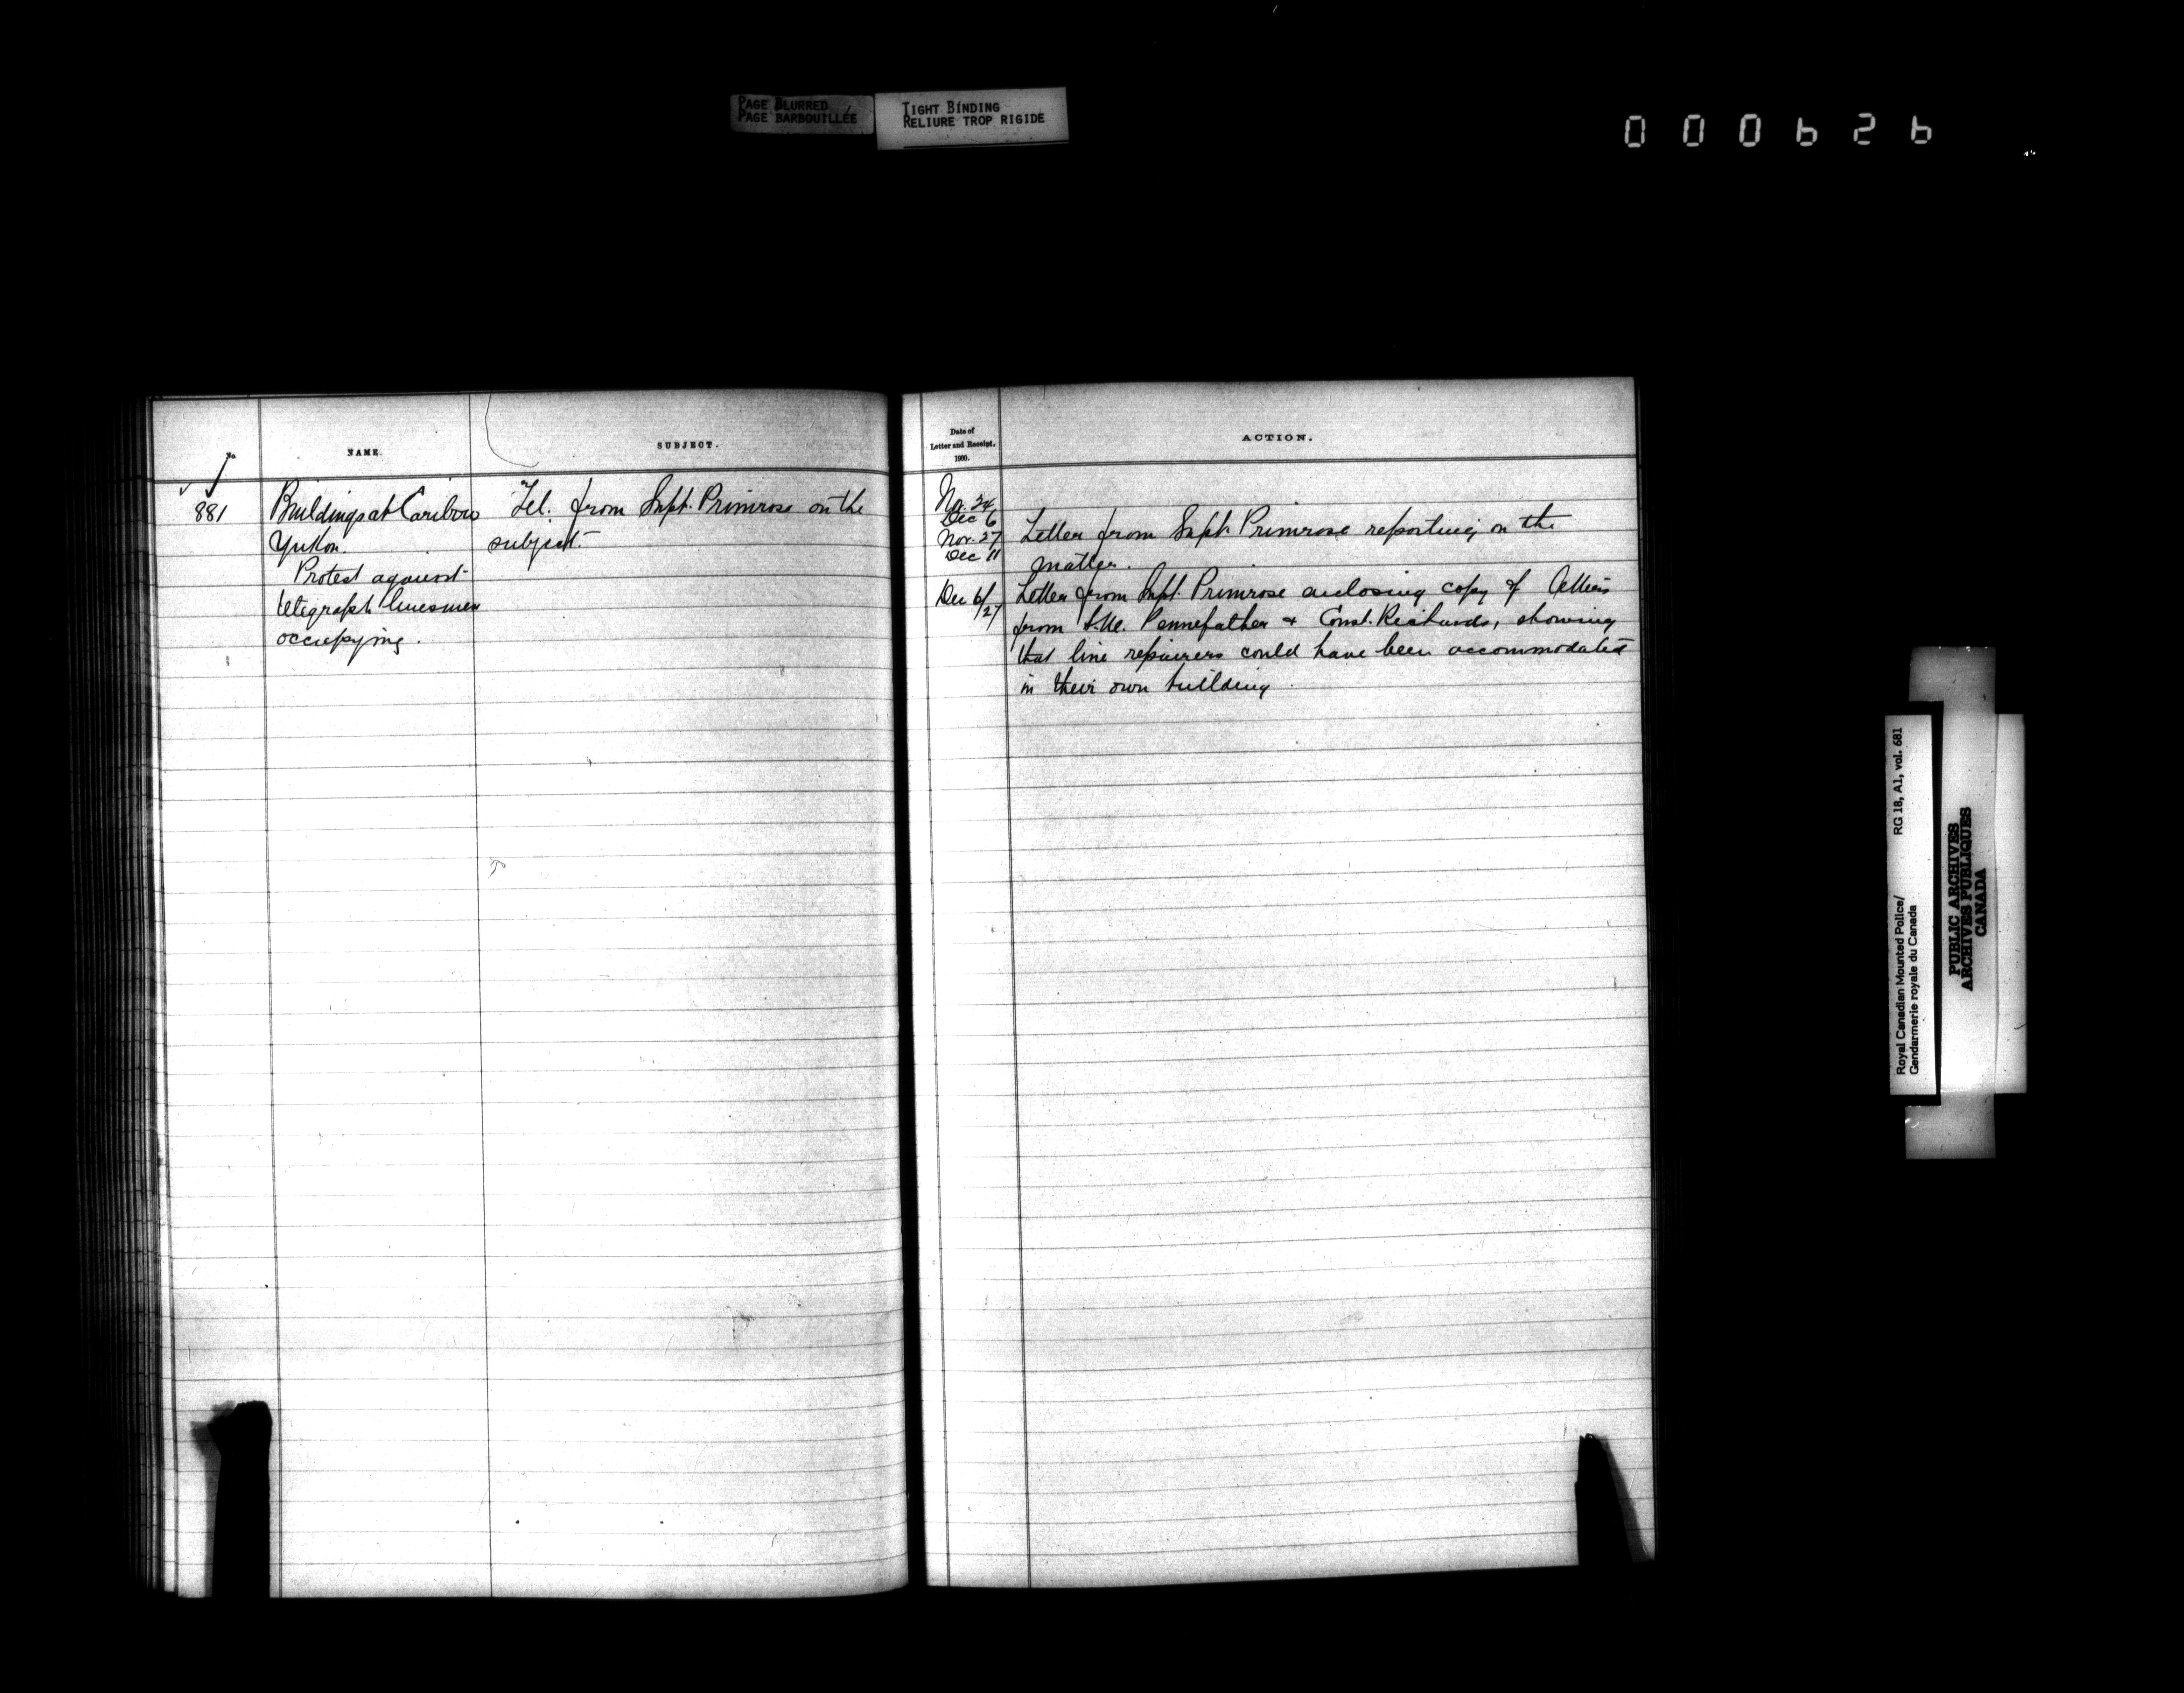 PAGE BLURRED
PAGE BARBOUILLÉE
TIGHT BINDING
RELIURE TROP RIGIDE
000626
No.
NAME.
SUBJECT.
881
Buildings at Caribou
Yukon.
Protest against
telegraph linesmen
occupying.
Tel. from Supt. Primrose on the
subject.
Date of
Letter and Receipt.
1900.
ACTION.
No. 24
Dec 6
Nov. 27
Dec 11
Letter from Supt. Primrose reporting on the
matter.
Dec 6/27
Letter from Supt. Primrose enclosing copy of letters
from Pennefather + Const. Richards, showing
that line repairers could have been accommodated
in their own building.
Royal Canadian Mounted Police/
Gendarmerie royale du Canada
RG 18, A1, vol. 681
PUBLIC ARCHIVES
ARCHIVES PUBLIQUES
CANADA